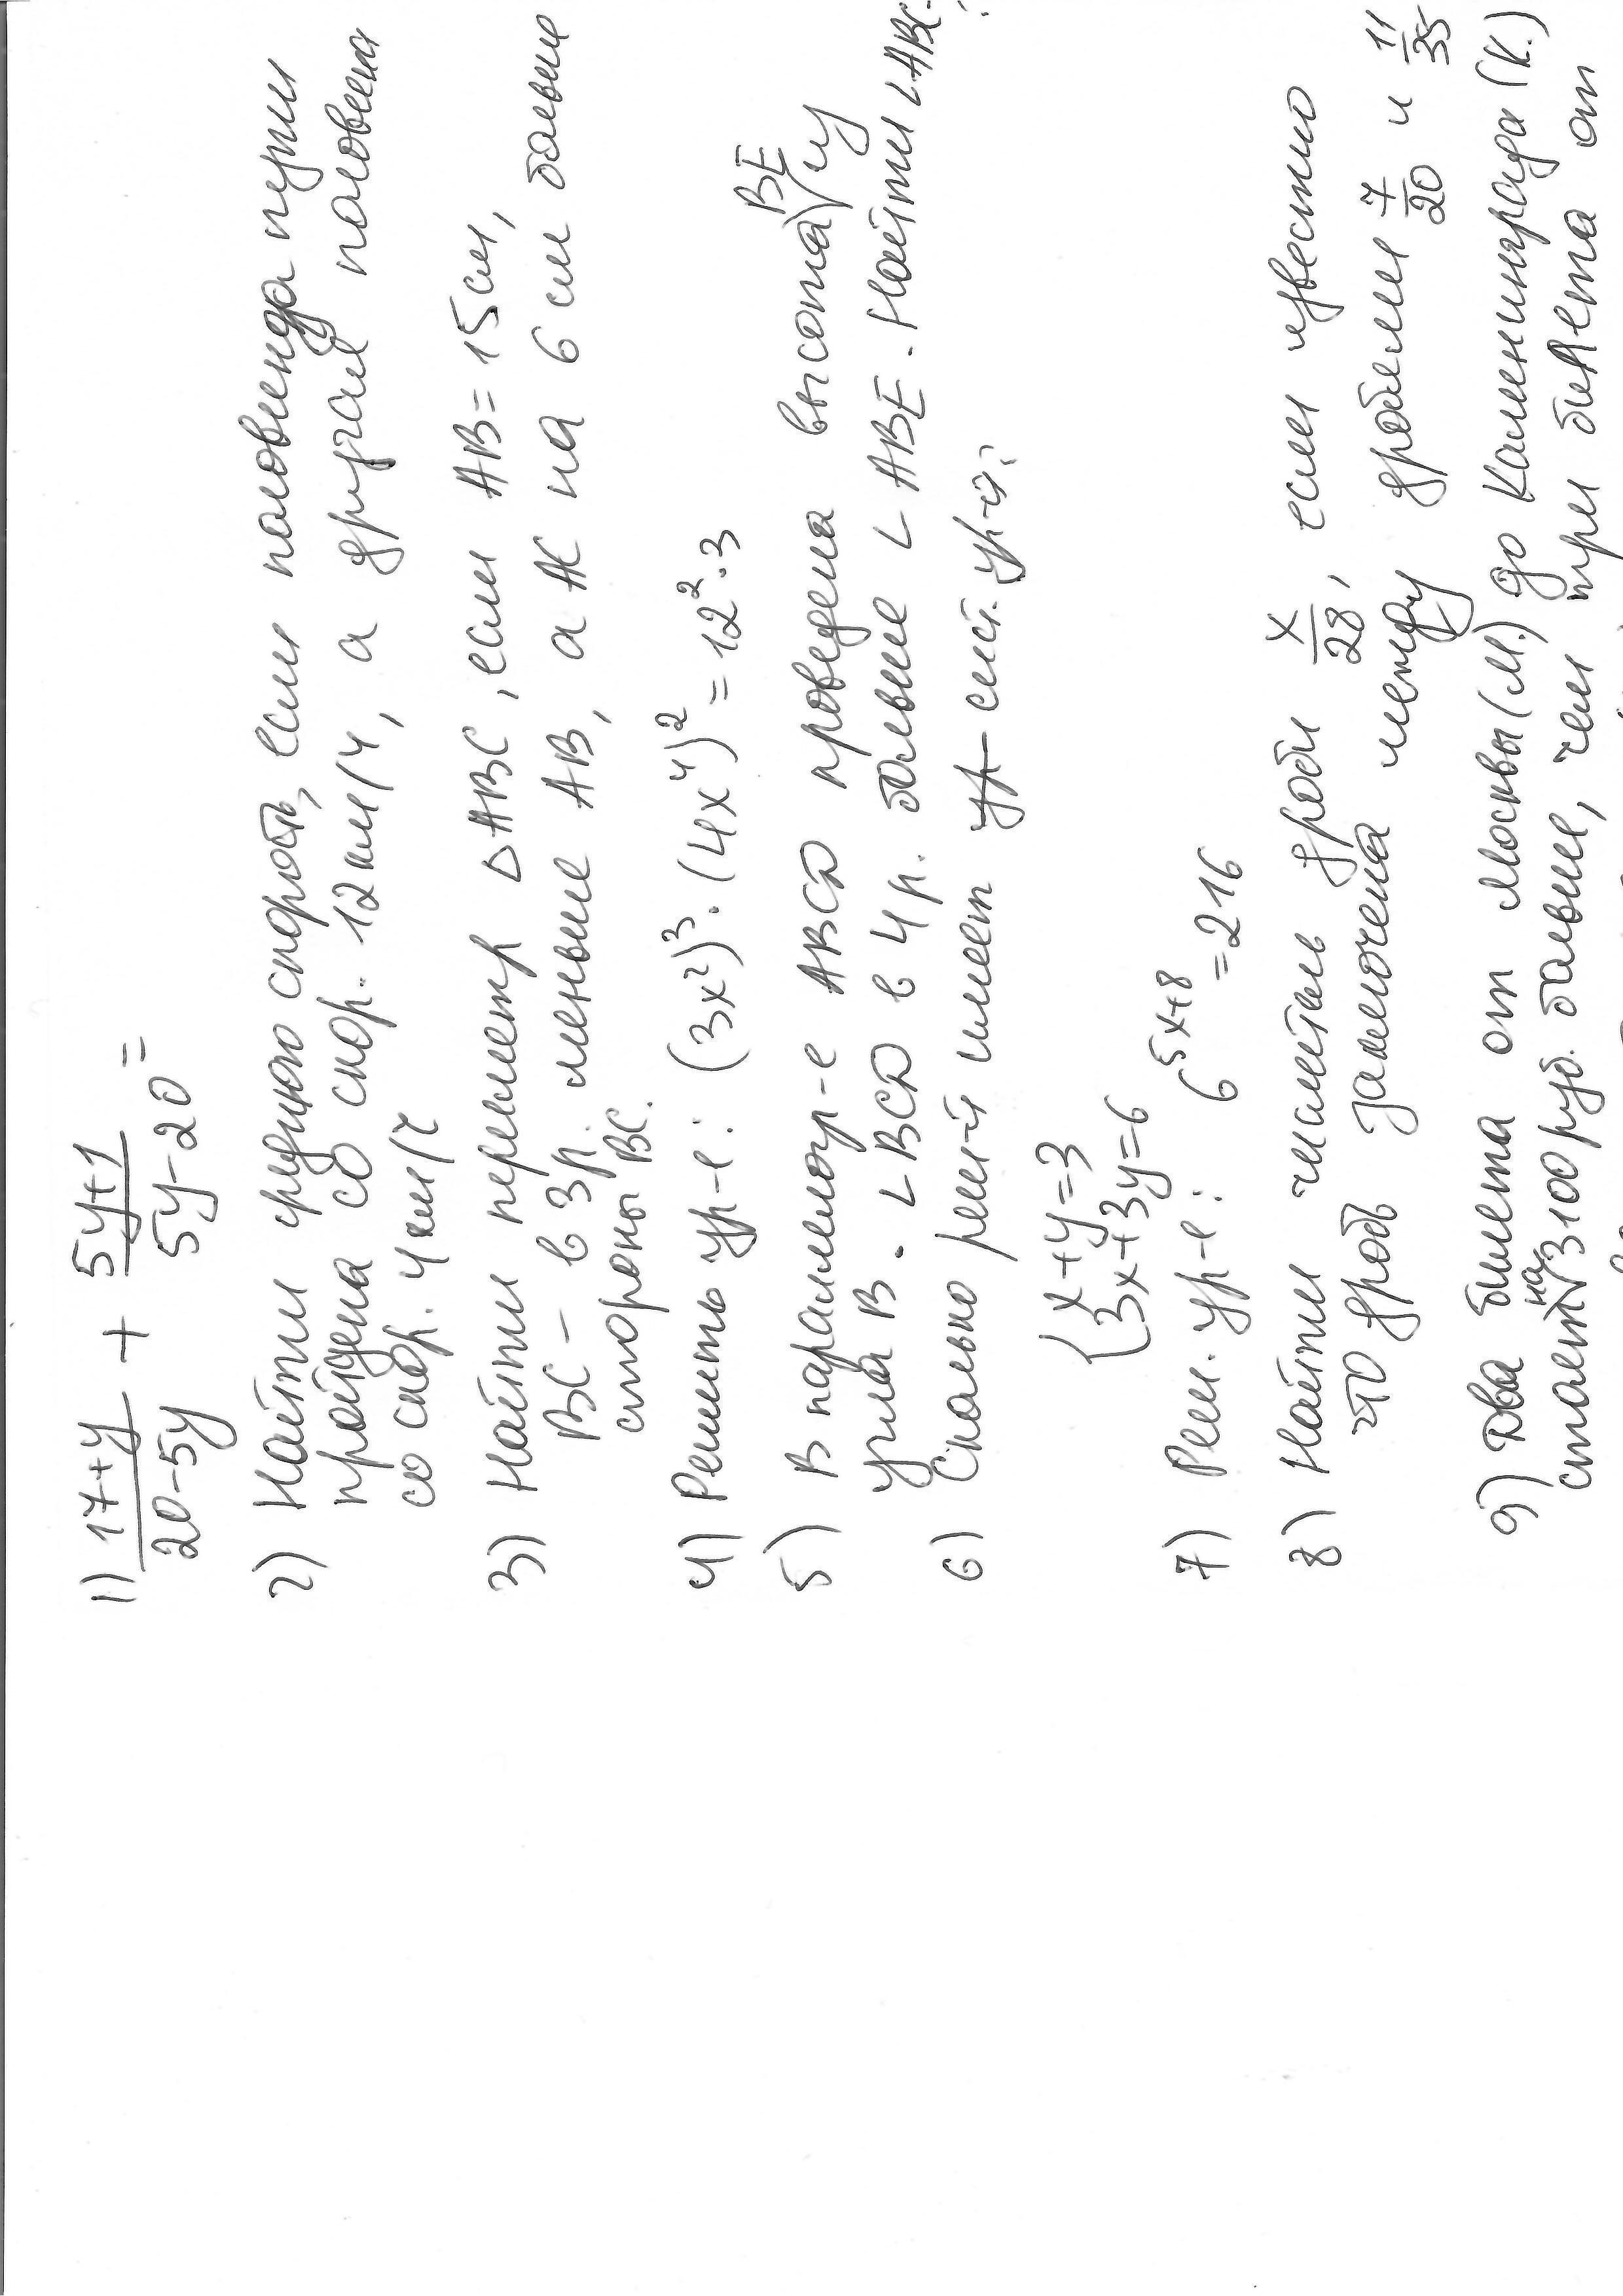 1) (17+y)/(20-5y) + (5y+1)/(5y-20) =
2) Найти среднюю скорость, если половинда пути
пройдена со скор. 12 км/ч, а другая половина
со скор. 4 км/ч
3) Найти периметр △ABC, если AB = 15см,
BC - в 3р. меньше AB, а AC на 6 см больше
стороны BC.
4) Решить ур-е: (3x²)³·(4x⁴)² = 12²·3
5) В параллелогр-е ABCD проведена высота BE из
угла B. ∠BCD в 4 р. больше ∠ABE. Найти ∠ABC-?
6) Сколько реш-й имеет ур сист. ур-й?
{x+y=3
3x+3y=6
7) Реш. ур-е: 6^(5x+8) = 216
8) Найти числитель дроби x/28, если известно
что дробь заключена между дробями 7/20 и 11/35
9) Два билета от Москвы (М.) до Калининграда (К.)
стоят на 3100 руб. больше, чем три билета от